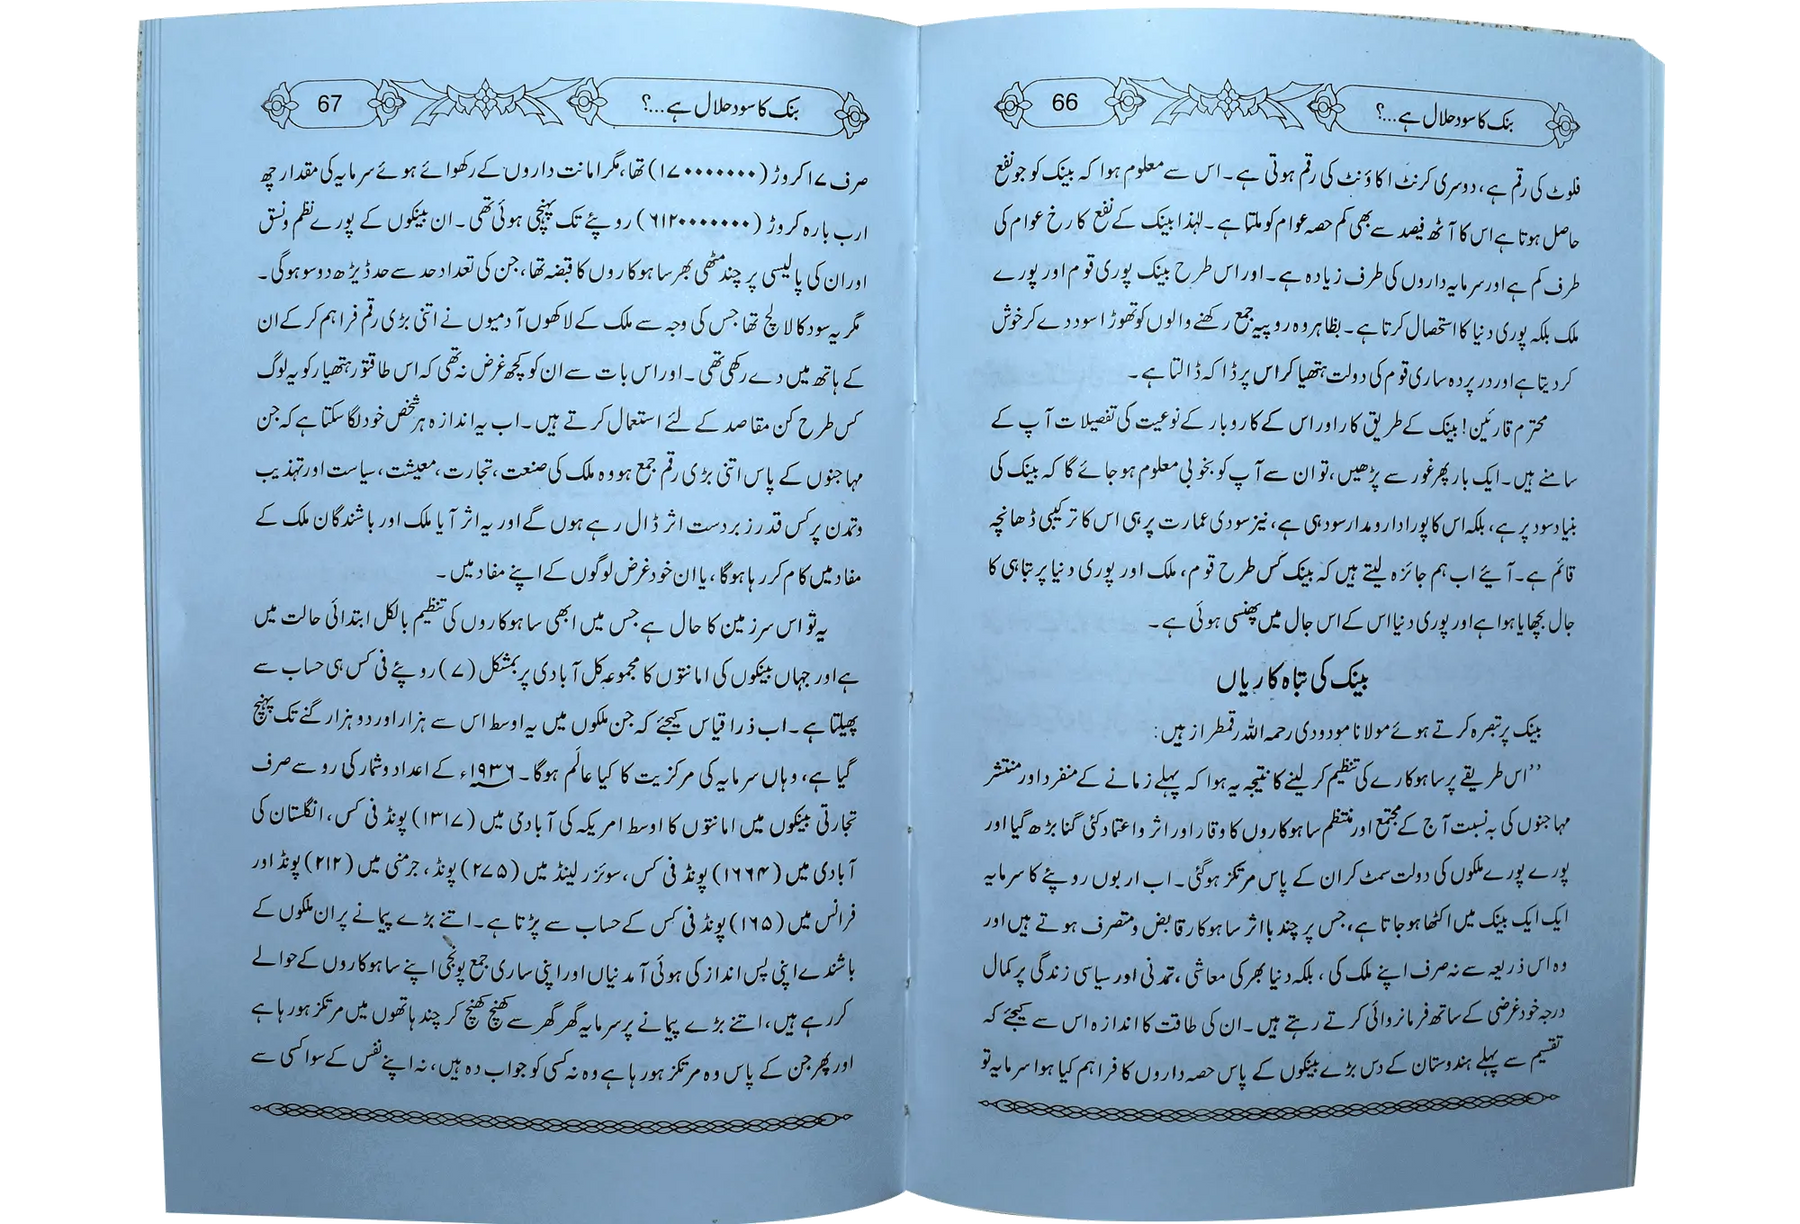 بنک کا سود حلال ہے...؟ 66
فلوٹ کی رقم ہے، دوسری کرنٹ اکاؤنٹ کی رقم ہوتی ہے۔ اس سے معلوم ہوا کہ بینک کو جو نفع
حاصل ہوتا ہے اس کا آٹھ فیصد سے بھی کم حصہ عوام کو ملتا ہے۔ لہٰذا بینک کے نفع کا رخ عوام کی
طرف کم ہے اور سرمایہ داروں کی طرف زیادہ ہے۔ اور اس طرح بینک پوری قوم اور پورے
ملک بلکہ پوری دنیا کا استحصال کرتا ہے۔ بظاہر وہ روپیہ جمع رکھنے والوں کو تھوڑا سود دے کر خوش
کر دیتا ہے اور در پردہ ساری قوم کی دولت ہتھیا کر اس پر ڈاکہ ڈالتا ہے۔
محترم قارئین! بینک کے طریق کار اور اس کے کاروبار کے نوعیت کی تفصیلات آپ کے
سامنے ہیں۔ ایک بار پھر غور سے پڑھیں، تو ان سے آپ کو بخوبی معلوم ہو جائے گا کہ بینک کی
بنیاد سود پر ہے، بلکہ اس کا پورا دارومدار سود ہی ہے، نیز سودی عمارت پر ہی اس کا ترکیبی ڈھانچہ
قائم ہے۔ آیئے اب ہم جائزہ لیتے ہیں کہ بینک کس طرح قوم، ملک اور پوری دنیا پر تباہی کا
جال بچھایا ہوا ہے اور پوری دنیا اس کے اس جال میں پھنسی ہوئی ہے۔
بینک کی تباہ کاریاں
بینک پر تبصرہ کرتے ہوئے مولانا مودودی رحمہ اللہ رقمطراز ہیں:
’’اس طریقے پر ساہوکارے کی تنظیم کر لینے کا نتیجہ یہ ہوا کہ پہلے زمانے کے منفرد اور منتشر
مہاجنوں کی بہ نسبت آج کے مجتمع اور منتظم ساہوکاروں کا وقار اور اثر واعتماد کئی گنا بڑھ گیا اور
پورے پورے ملکوں کی دولت سمٹ کر ان کے پاس مرتکز ہوگئی۔ اب اربوں روپئے کا سرمایہ
ایک ایک بینک میں اکٹھا ہو جاتا ہے، جس پر چند بااثر ساہوکار قابض ومتصرف ہوتے ہیں اور
وہ اس ذریعہ سے نہ صرف اپنے ملک کی، بلکہ دنیا بھر کی معاشی، تمدنی اور سیاسی زندگی پر کمال
درجہ خودغرضی کے ساتھ فرمانروائی کرتے رہتے ہیں۔ ان کی طاقت کا اندازہ اس سے کیجئے کہ
تقسیم سے پہلے ہندوستان کے دس بڑے بینکوں کے پاس حصہ داروں کا فراہم کیا ہوا سرمایہ تو
بنک کا سود حلال ہے...؟ 67
صرف ۱۷ کروڑ (۱۷۰۰۰۰۰۰۰) تھا، مگر امانت داروں کے رکھوائے ہوئے سرمایہ کی مقدار چھ
ارب بارہ کروڑ (۶۱۲۰۰۰۰۰۰۰) روپئے تک پہنچی ہوئی تھی۔ ان بینکوں کے پورے نظم ونسق
اور ان کی پالیسی پر چند مٹھی بھر ساہوکاروں کا قبضہ تھا، جن کی تعداد حد سے حد ڈیڑھ دو سو ہوگی۔
مگر یہ سود کا لالچ تھا جس کی وجہ سے ملک کے لاکھوں آدمیوں نے اتنی بڑی رقم فراہم کر کے ان
کے ہاتھ میں دے رکھی تھی۔ اور اس بات سے ان کو کچھ غرض نہ تھی کہ اس طاقتور ہتھیار کو یہ لوگ
کس طرح کن مقاصد کے لئے استعمال کرتے ہیں۔ اب یہ اندازہ ہر شخص خود لگا سکتا ہے کہ جن
مہاجنوں کے پاس اتنی بڑی رقم جمع ہو وہ ملک کی صنعت، تجارت، معیشت، سیاست اور تہذیب
وتمدن پر کس قدر زبردست اثر ڈال رہے ہوں گے اور یہ اثر آیا ملک اور باشندگان ملک کے
مفاد میں کام کر رہا ہوگا، یا ان خود غرض لوگوں کے اپنے مفاد میں۔
یہ تو اس سرزمین کا حال ہے جس میں ابھی ساہوکاروں کی تنظیم بالکل ابتدائی حالت میں
ہے اور جہاں بینکوں کی امانتوں کا مجموعہ کل آبادی پر بمشکل (۷) روپئے فی کس ہی حساب سے
پھیلتا ہے۔ اب ذرا قیاس کیجئے کہ جن ملکوں میں یہ اوسط اس سے ہزار اور دو ہزار گنے تک پہنچ
گیا ہے، وہاں سرمایہ کی مرکزیت کا کیا عالَم ہوگا۔ ۱۹۳۶ء کے اعداد وشمار کی رو سے صرف
تجارتی بینکوں میں امانتوں کا اوسط امریکہ کی آبادی میں (۱۳۱۷) پونڈ فی کس، انگلستان کی
آبادی میں (۱۶۶۴) پونڈ فی کس، سوئزرلینڈ میں (۲۷۵) پونڈ، جرمنی میں (۲۱۲) پونڈ اور
فرانس میں (۱۶۵) پونڈ فی کس کے حساب سے پڑتا ہے۔ اتنے بڑے پیمانے پر ان ملکوں کے
باشندے اپنی پس انداز کی ہوئی آمدنیاں اور اپنی ساری جمع پونجی اپنے ساہوکاروں کے حوالے
کر رہے ہیں، اتنے بڑے پیمانے پر سرمایہ گھر گھر سے کھنچ کھنچ کر چند ہاتھوں میں مرتکز ہو رہا ہے
اور پھر جن کے پاس وہ مرتکز ہو رہا ہے وہ نہ کسی کو جواب دہ ہیں، نہ اپنے نفس کے سوا کسی سے